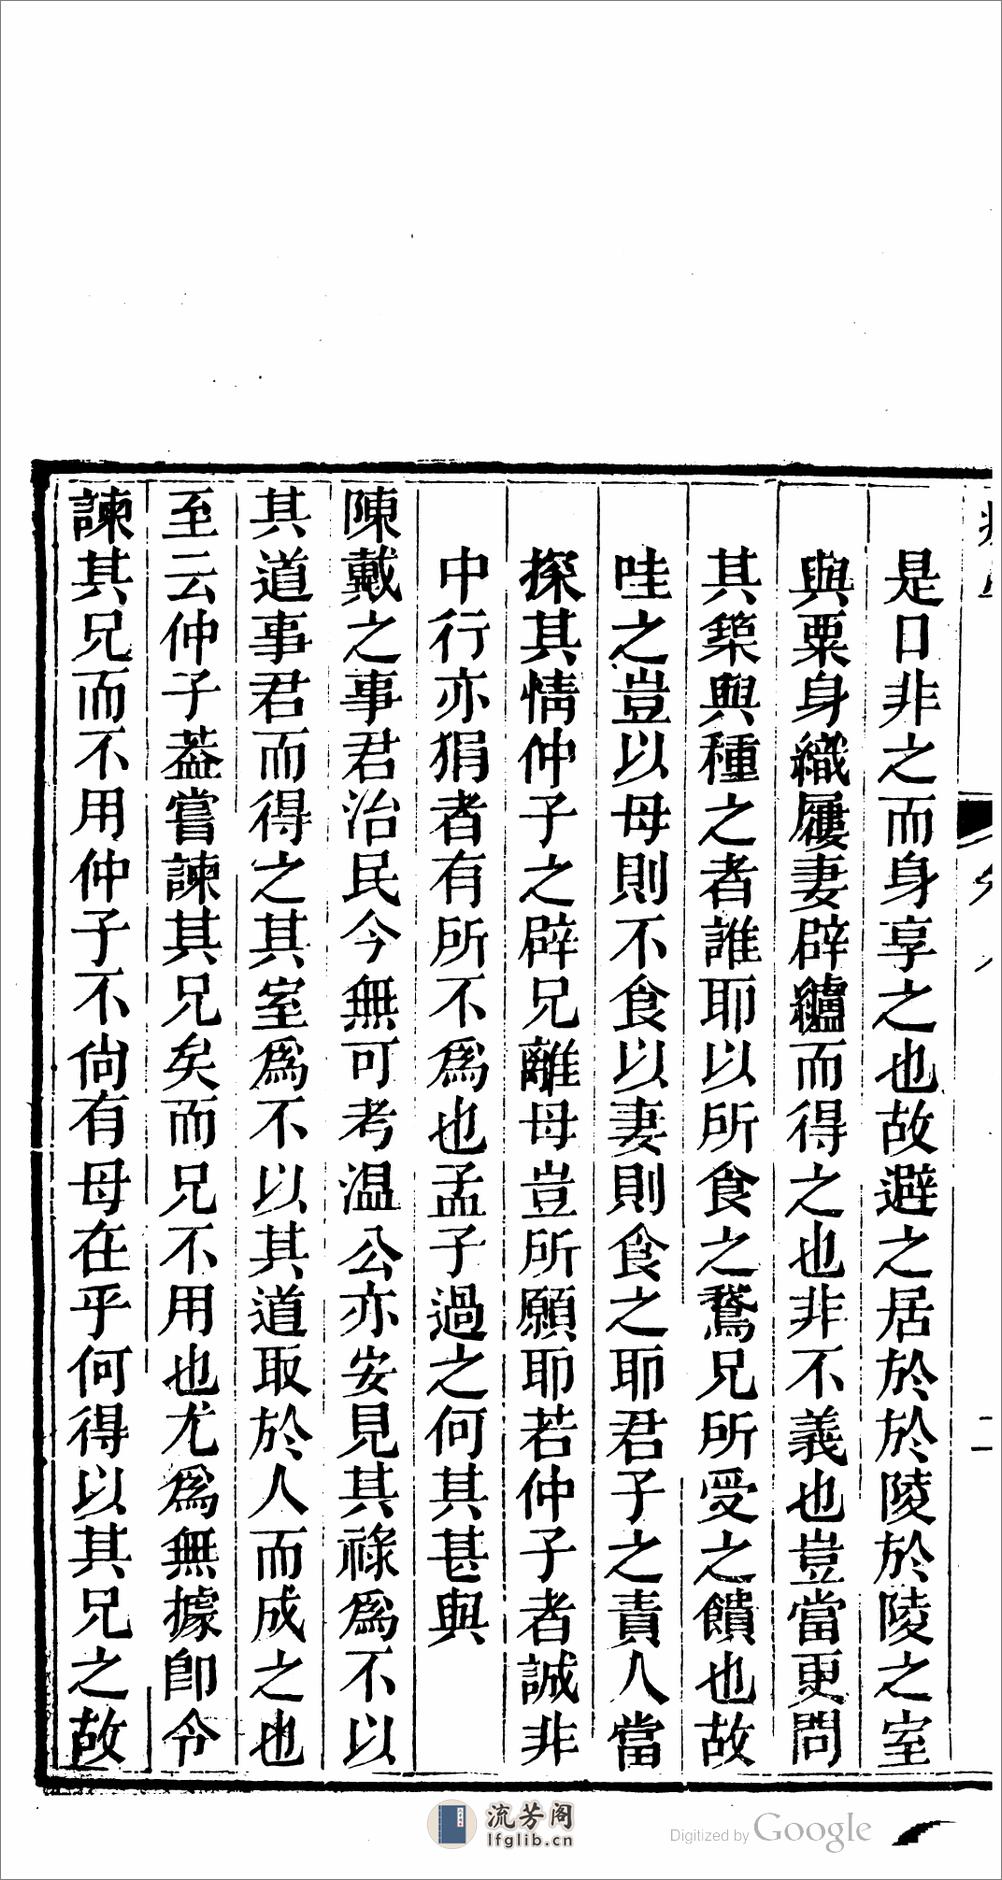 是口非之而身享之也故避之居於於陵於陵之室
與粟身織屨妻辟纑而得之也非不義也豈當更問
其築與種之者誰耶以所食之鵞兄所受之饋也故
哇之豈以母則不食以妻則食之耶君子之責人當
探其情仲子之辟兄離母豈所願耶若仲子者誠非
中行亦狷者有所不爲也孟子過之何其甚與
陳戴之事君治民今無可考温公亦安見其祿爲不以
其道事君而得之其室爲不以其道取於人而成之也
至云仲子葢嘗諫其兄矣而兄不用也尤爲無據卽令
諫其兄而不用仲子不尙有母在乎何得以其兄之故
流芳阁
lfglib.cn
Digitized by Google